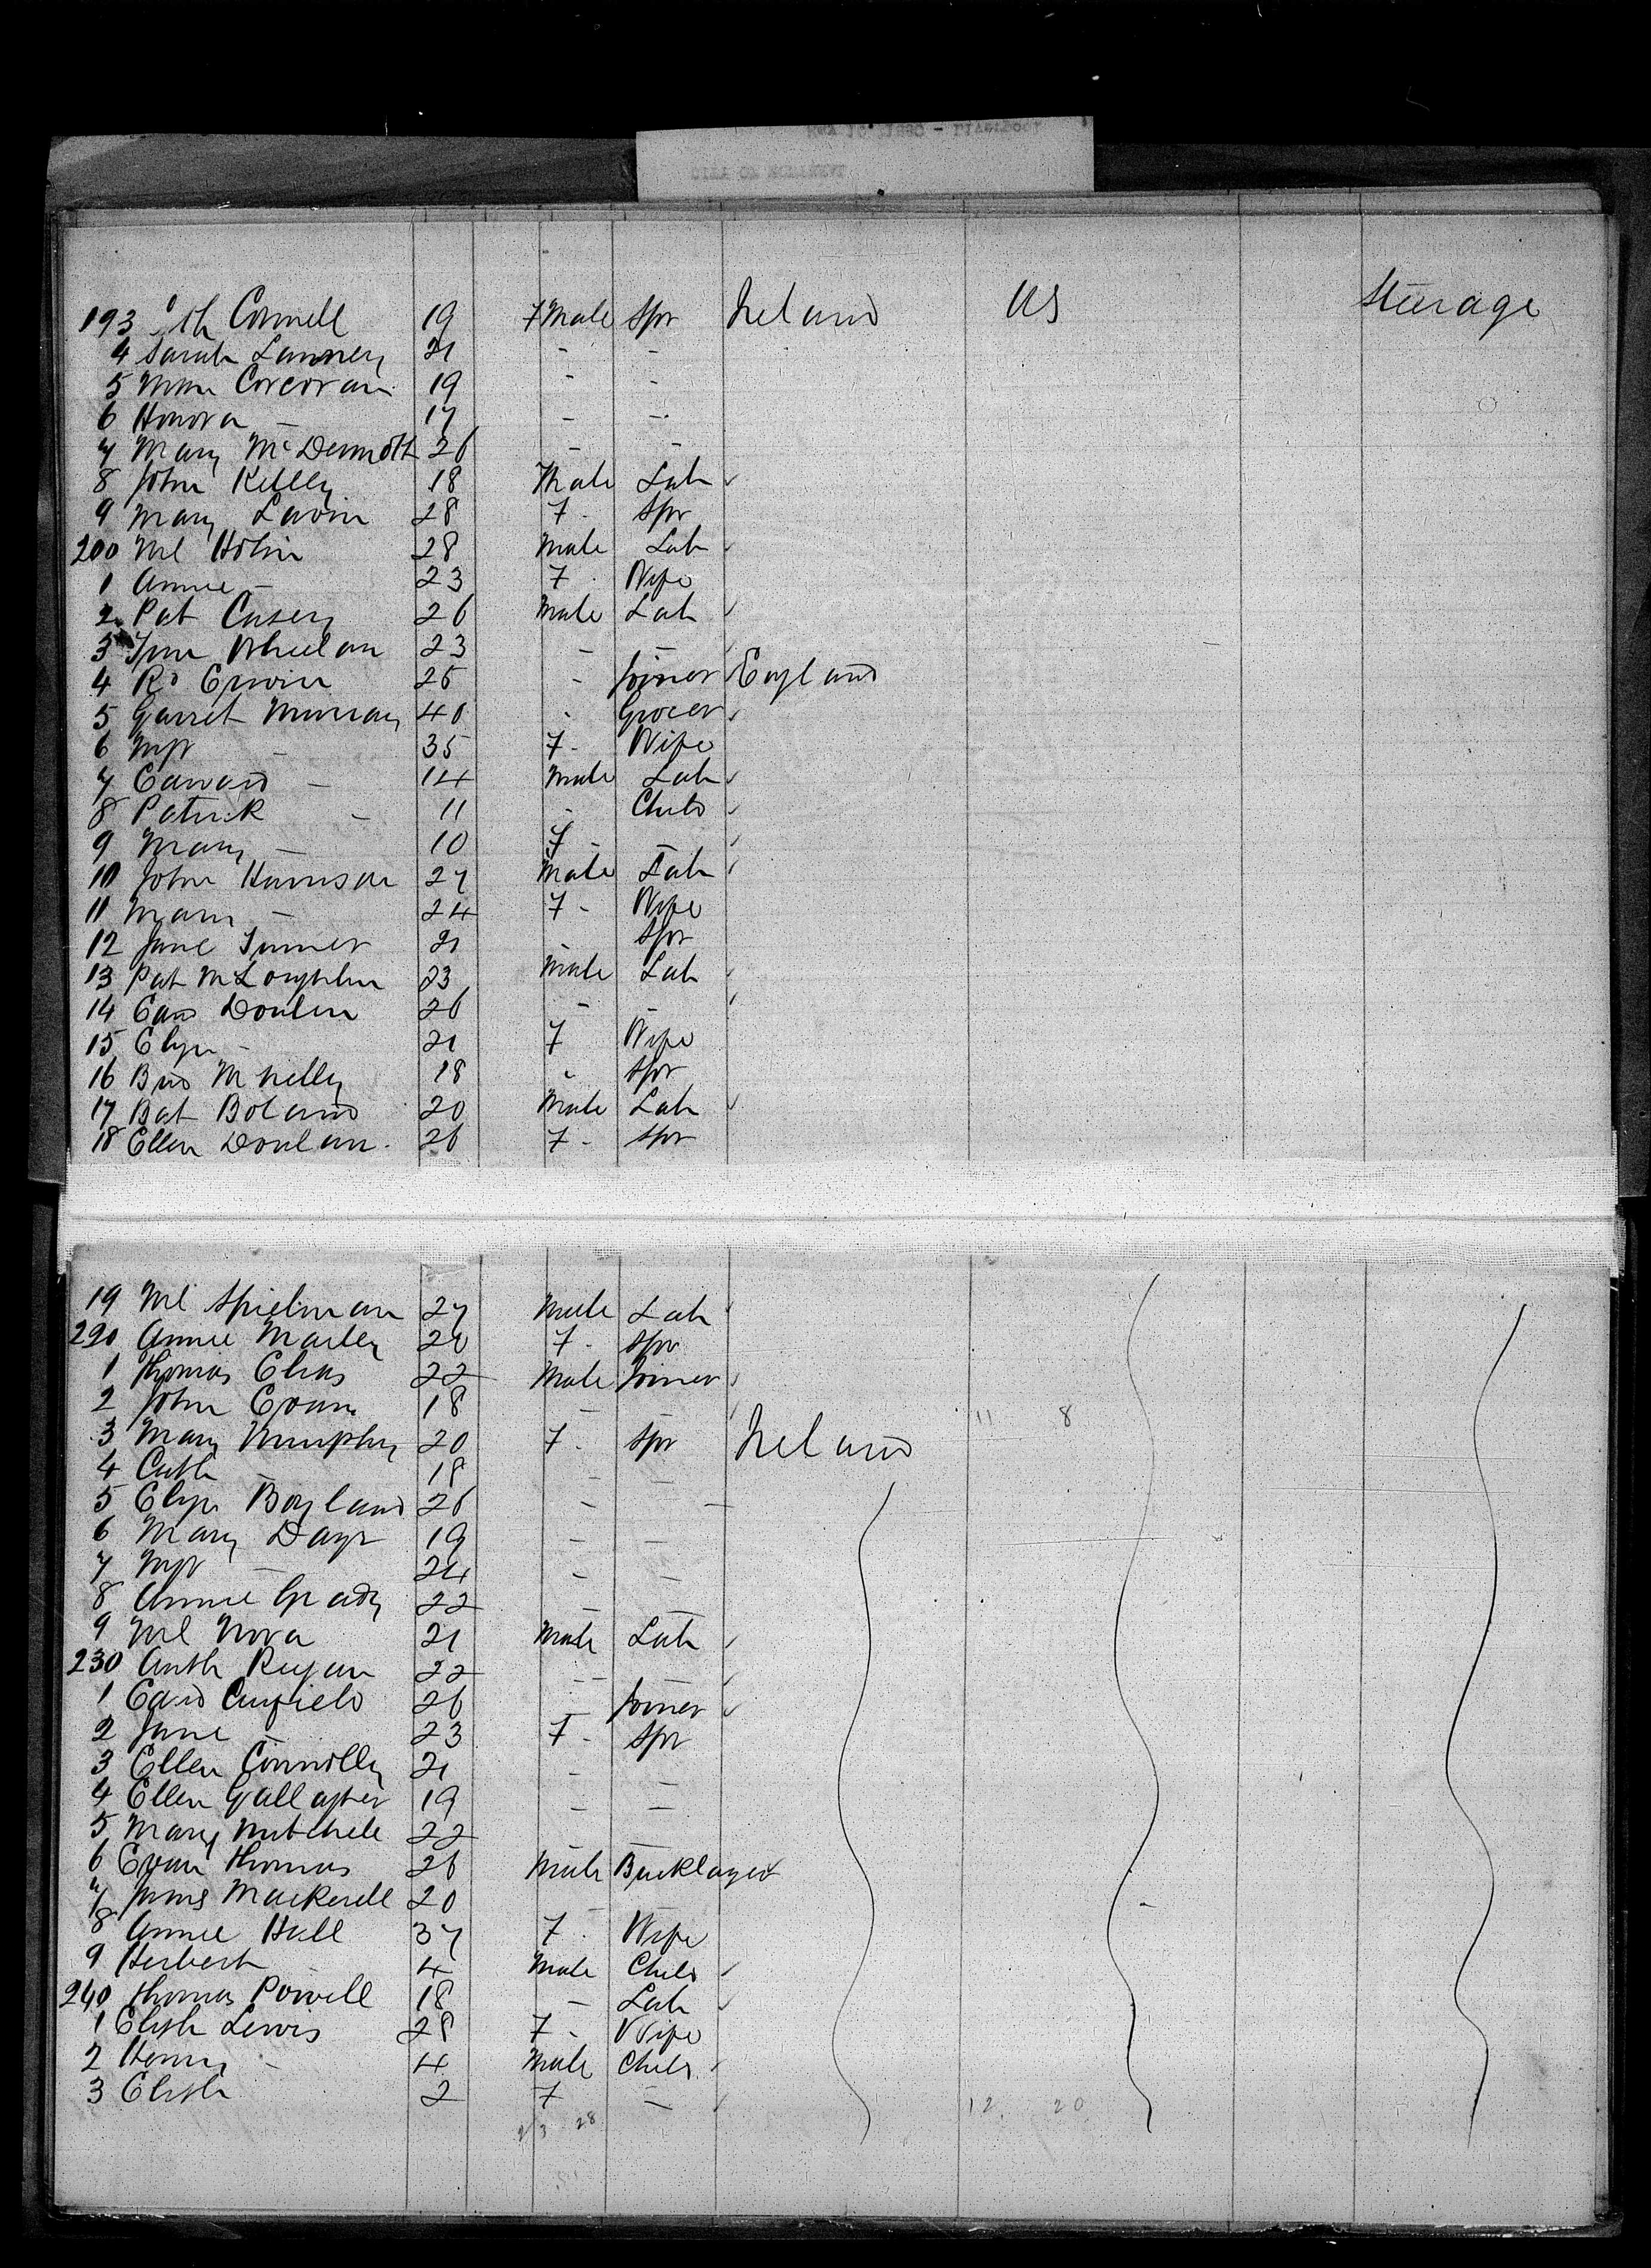 193 th Connell 19 Female Spr Ireland US Steerage
4 Sarah Lannery 21 - -
5 Mm Corcoran 19 - -
6 Honora - 17 - -
7 Mary McDermott 26 - -
8 John Kelly 18 Male Lab
9 Mary Lavin 28 F - Spr
200 Ml 28 Male Lab
1 Annie - 23 F - Wife
2 Pat Casey 26 Male Lab
3 Whelan 23 - -
4 Rd Erwin 25 - Joiner England
5 Garret Murray 40 - Grocer
6 Mgt - 35 F - Wife
7 Edward - 14 Male Lab
8 Patrick - 11 - Child
9 Mary - 10 F - -
10 John Harrison 27 Male Lab
11 Mary - 24 F - Wife
12 Jane Turner 21 - Spr
13 Pat McLoughlin 23 Male Lab
14 Edwd Donlen 26 - -
15 Eliza - 21 F Wife
16 Brid 18 - Spr
17 Bat Boland 20 Male Lab
18 Ellen Donlan 26 F - Spr
19 Ml Spielman 27 Male Lab
220 Annie Marley 20 F - Spr
1 Thomas Elias 22 Male Joiner
2 John Evans 18 - - 11 8
3 Mary Murphy 20 F - Spr Ireland
4 Cath - 18 - -
5 Eliza Boyland 26 - -
6 Mary Days 19 - -
7 Mgt - 24 - -
8 Annie Grady 22 - -
9 Ml Nora 21 Male Lab
230 Anth Regan 22 - -
1 Edwd Canfield 26 - Joiner
2 Jane - 23 F - Spr
3 Ellen Connolly 21 - -
4 Ellen Gallagher 19 - -
5 Mary Mitchell 22 - -
6 Evan Thomas 26 Male Bricklayer
7 Mackerell 20 - -
8 Annie Hall 37 F - Wife
9 Herbert - 4 Male Child
240 Thomas Powell 18 - Lab
1 Elizth Lewis 28 F - Wife
2 Henry - 4 Male Child
3 Elizth 2 F - 12 20